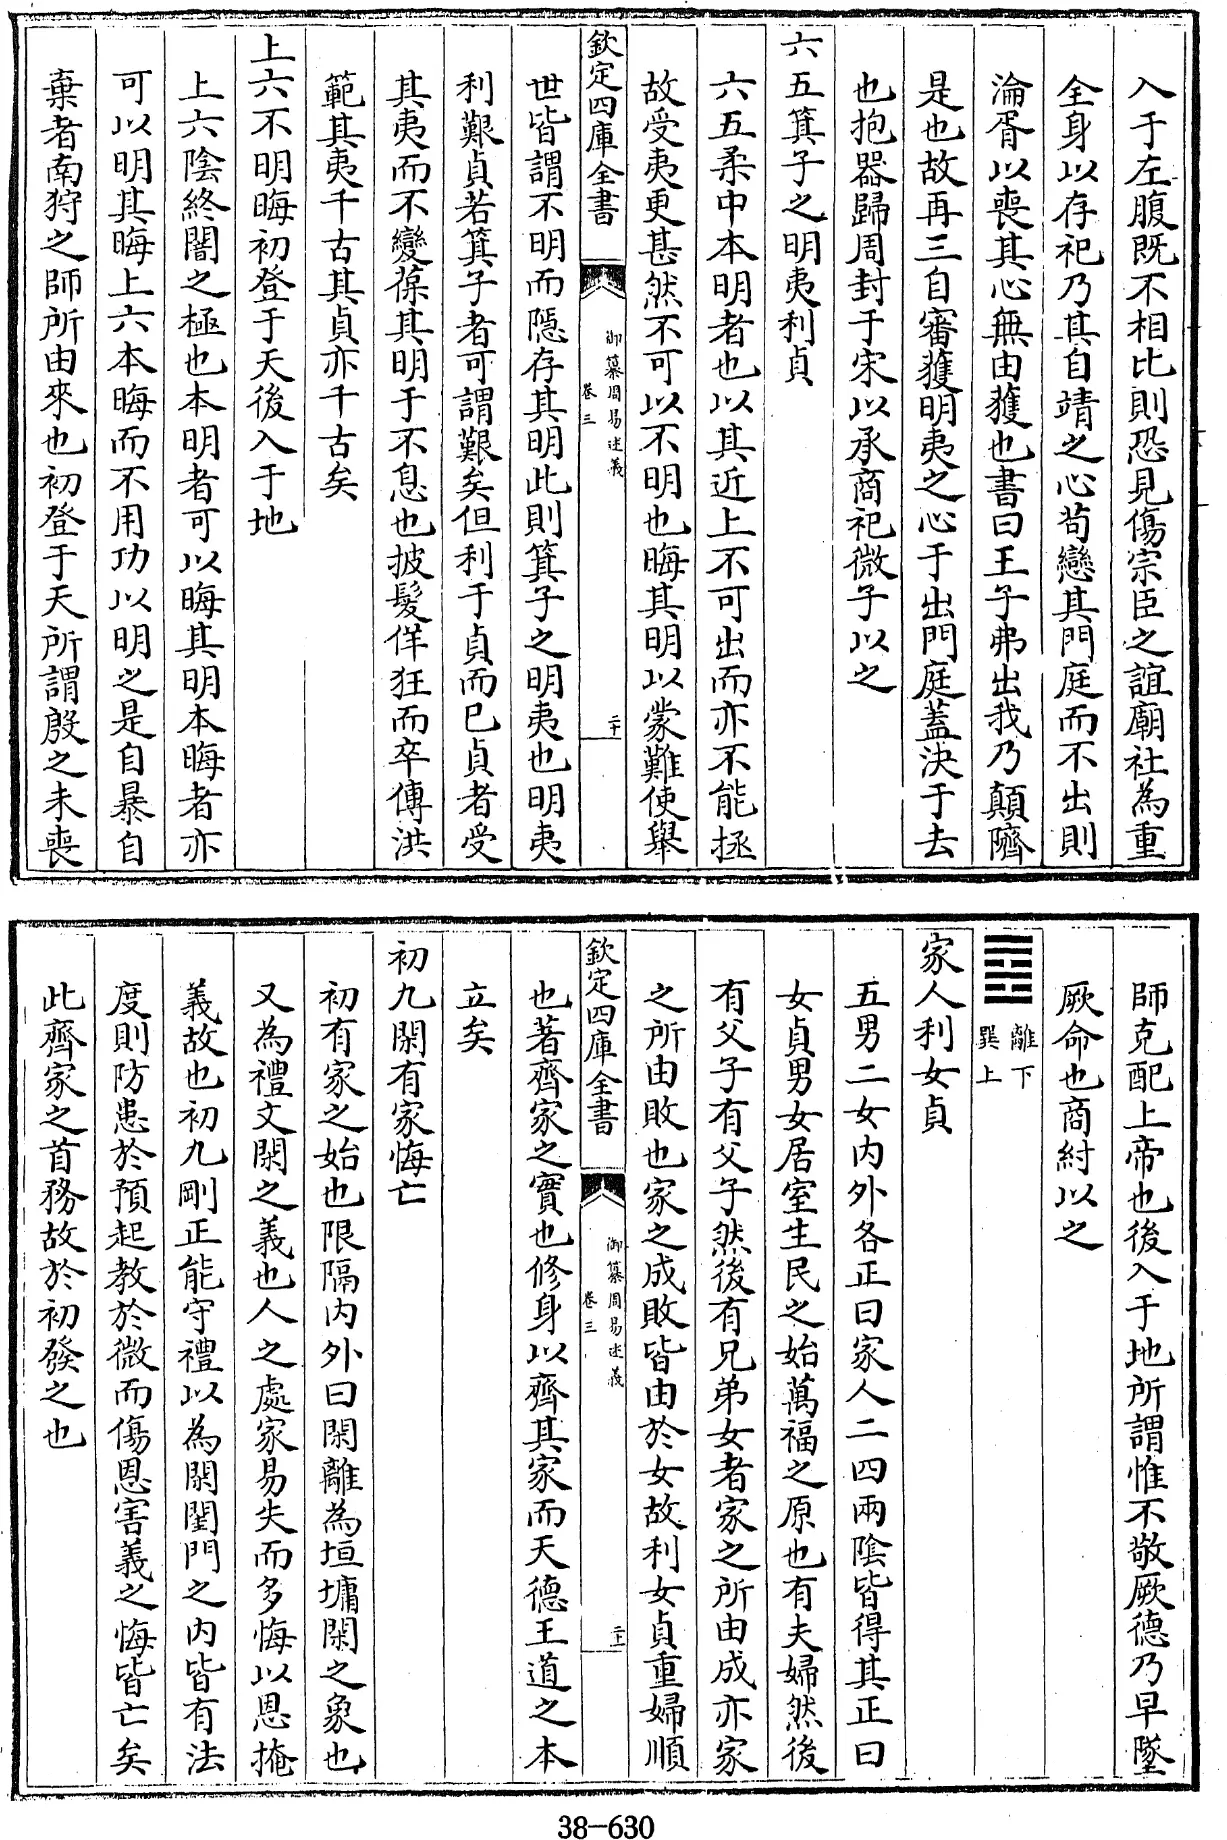 入于左腹既不相比則恐見傷宗臣之誼廟社為重
全身以存祀乃其自靖之心苟戀其門庭而不出則
淪胥以喪其心無由獲也書曰王子弗出我乃顛隮
是也故再三自審獲明夷之心于出門庭蓋決于去
也抱器歸周封于宋以承商祀微子以之
六五箕子之明夷利貞
六五柔中本明者也以其近上不可出而亦不能拯
故受夷更甚然不可以不明也晦其明以蒙難使舉
欽定四庫全書
御纂周易述義
卷三
二十
世皆謂不明而隱存其明此則箕子之明夷也明夷
利艱貞若箕子者可謂艱矣但利于貞而已貞者受
其夷而不變葆其明于不息也披髮佯狂而卒傳洪
範其夷千古其貞亦千古矣
上六不明晦初登于天後入于地
上六陰終闇之極也本明者可以晦其明本晦者亦
可以明其晦上六本晦而不用功以明之是自暴自
棄者南狩之師所由來也初登于天所謂殷之未喪
師克配上帝也後入于地所謂惟不敬厥德乃早墜
厥命也商紂以之
離下
巽上
家人利女貞
五男二女内外各正曰家人二四兩陰皆得其正曰
女貞男女居室生民之始萬福之原也有夫婦然後
有父子有父子然後有兄弟女者家之所由成亦家
之所由敗也家之成敗皆由於女故利女貞重婦順
欽定四庫全書
御纂周易述義
卷三
二十一
也著齊家之實也修身以齊其家而天德王道之本
立矣
初九閑有家悔亡
初有家之始也限隔内外曰閑離為垣墉閑之象也
又為禮文閑之義也人之處家易失而多悔以恩掩
義故也初九剛正能守禮以為閑閨門之内皆有法
度則防患於預起教於微而傷恩害義之悔皆亡矣
此齊家之首務故於初發之也
38-630